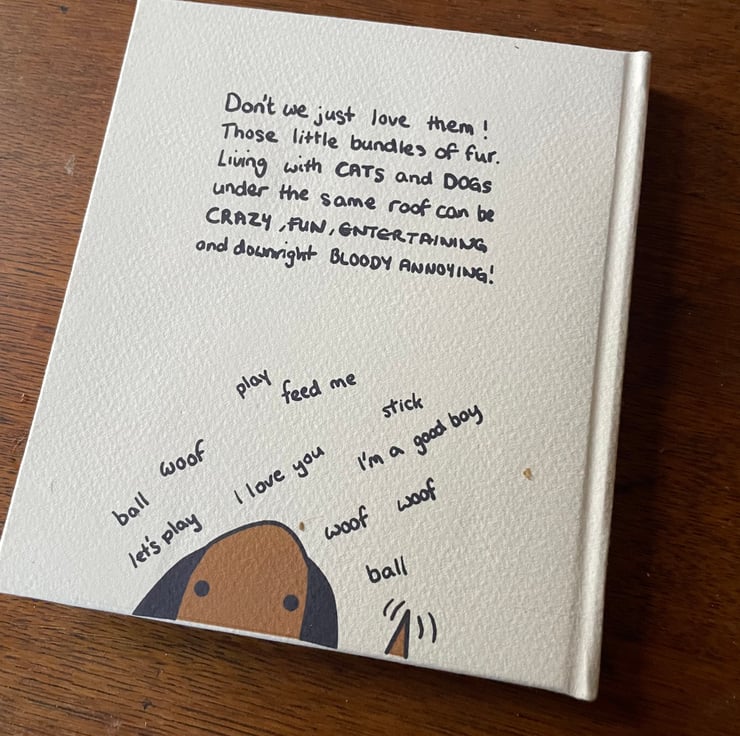 Don't we just love them!
Those little bundles of fur.
Living with CATS and DOGS
under the same roof can be
CRAZY, FUN, ENTERTAINING
and downright BLOODY ANNOYING!
play
feed me
stick
I'm a good boy
woof
I love you
ball
let's play
woof
woof
ball